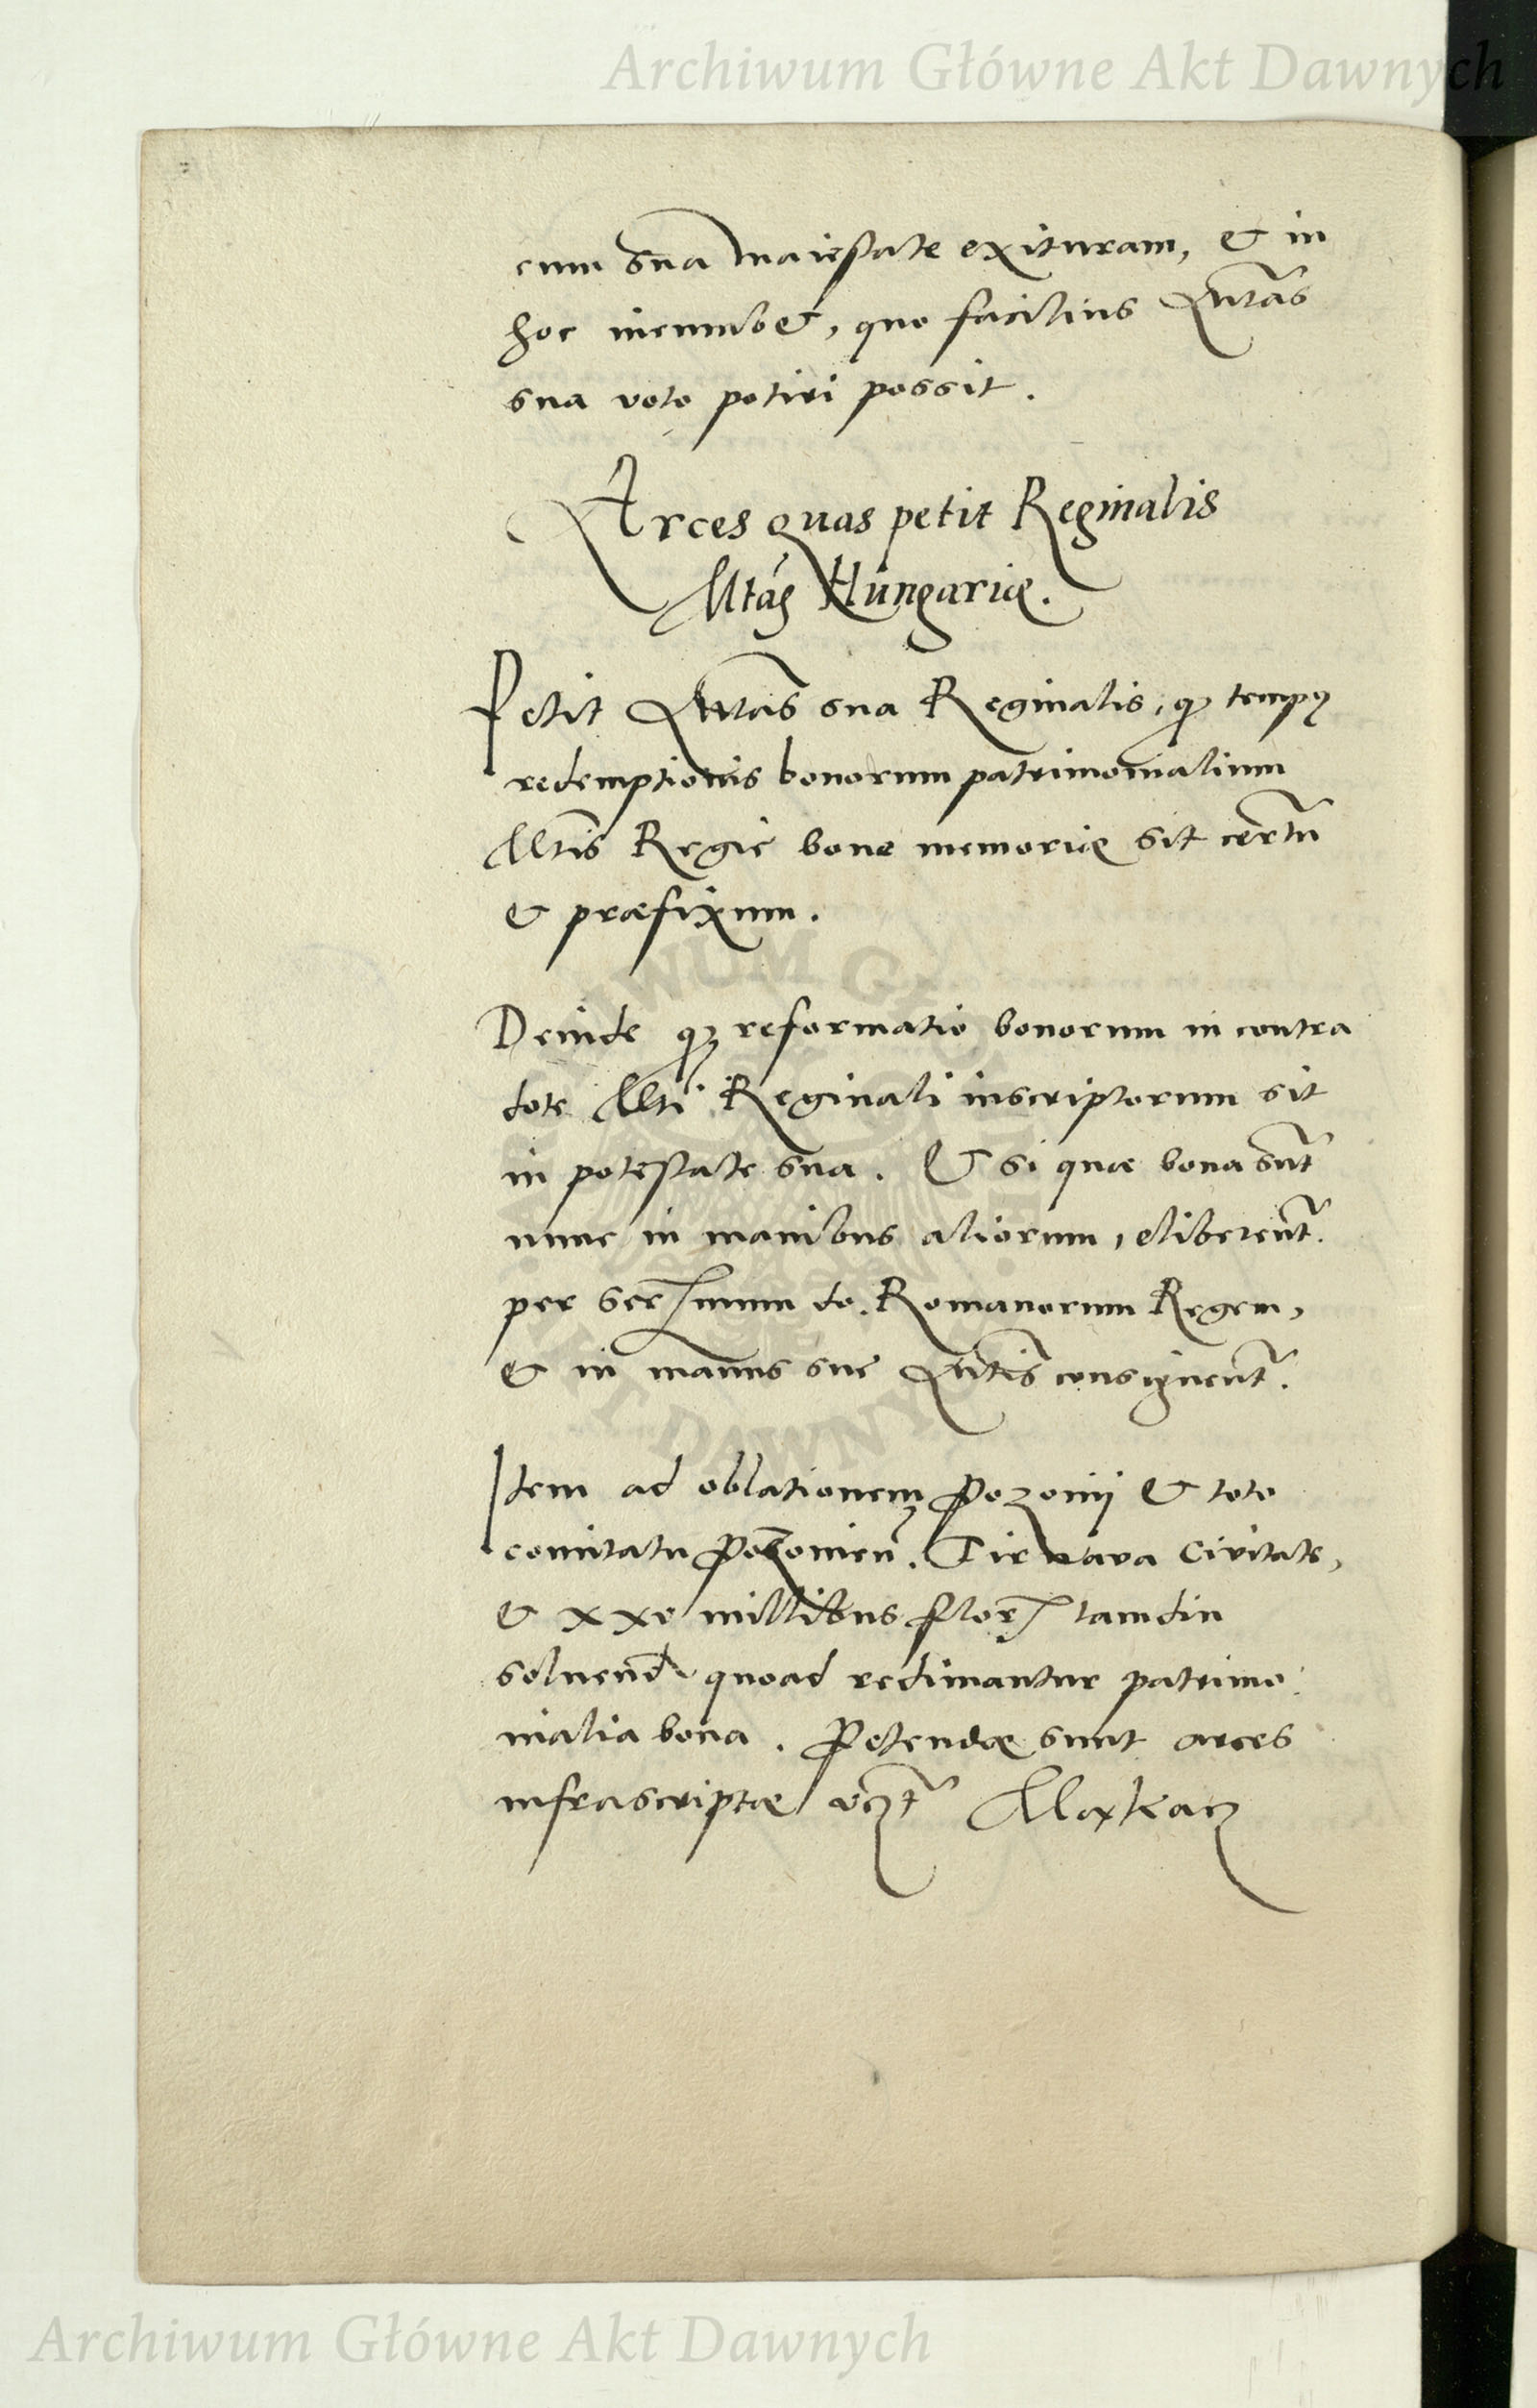 Archiwum Główne Akt Dawnych
cum sua maiestate exituram, & in
hoc incumbet, quo facilius Mtas
sua voto potiri possit.
Arces quas petit Reginalis
Mtas Hungariæ.
Petit Mtas sua Reginalis, qd tempus
redemptionis bonorum patrimonialium
Mtis Regie bone memoriæ sit certū
& præfixum.
Deinde qd reformatio bonorum in contra
dote Mti Reginali inscriptorum sit
in potestate sua. Et si quæ bona sūt
nunc in manibus aliorum, eliberent.
per Sermum do. Romanorum Regem,
& in manus sue Mtis consignent.
Item ad oblationem Pozonij & toto
comitatu Pozonien. Tirnava Civitate,
& xxv millibus flor tamdiu
soluend quoad redimantur patrimo
nialia bona. Petendæ sunt arces
infrascriptæ vczt
ARCHIWUM GŁÓWNE AKT DAWNYCH
Archiwum Główne Akt Dawnych